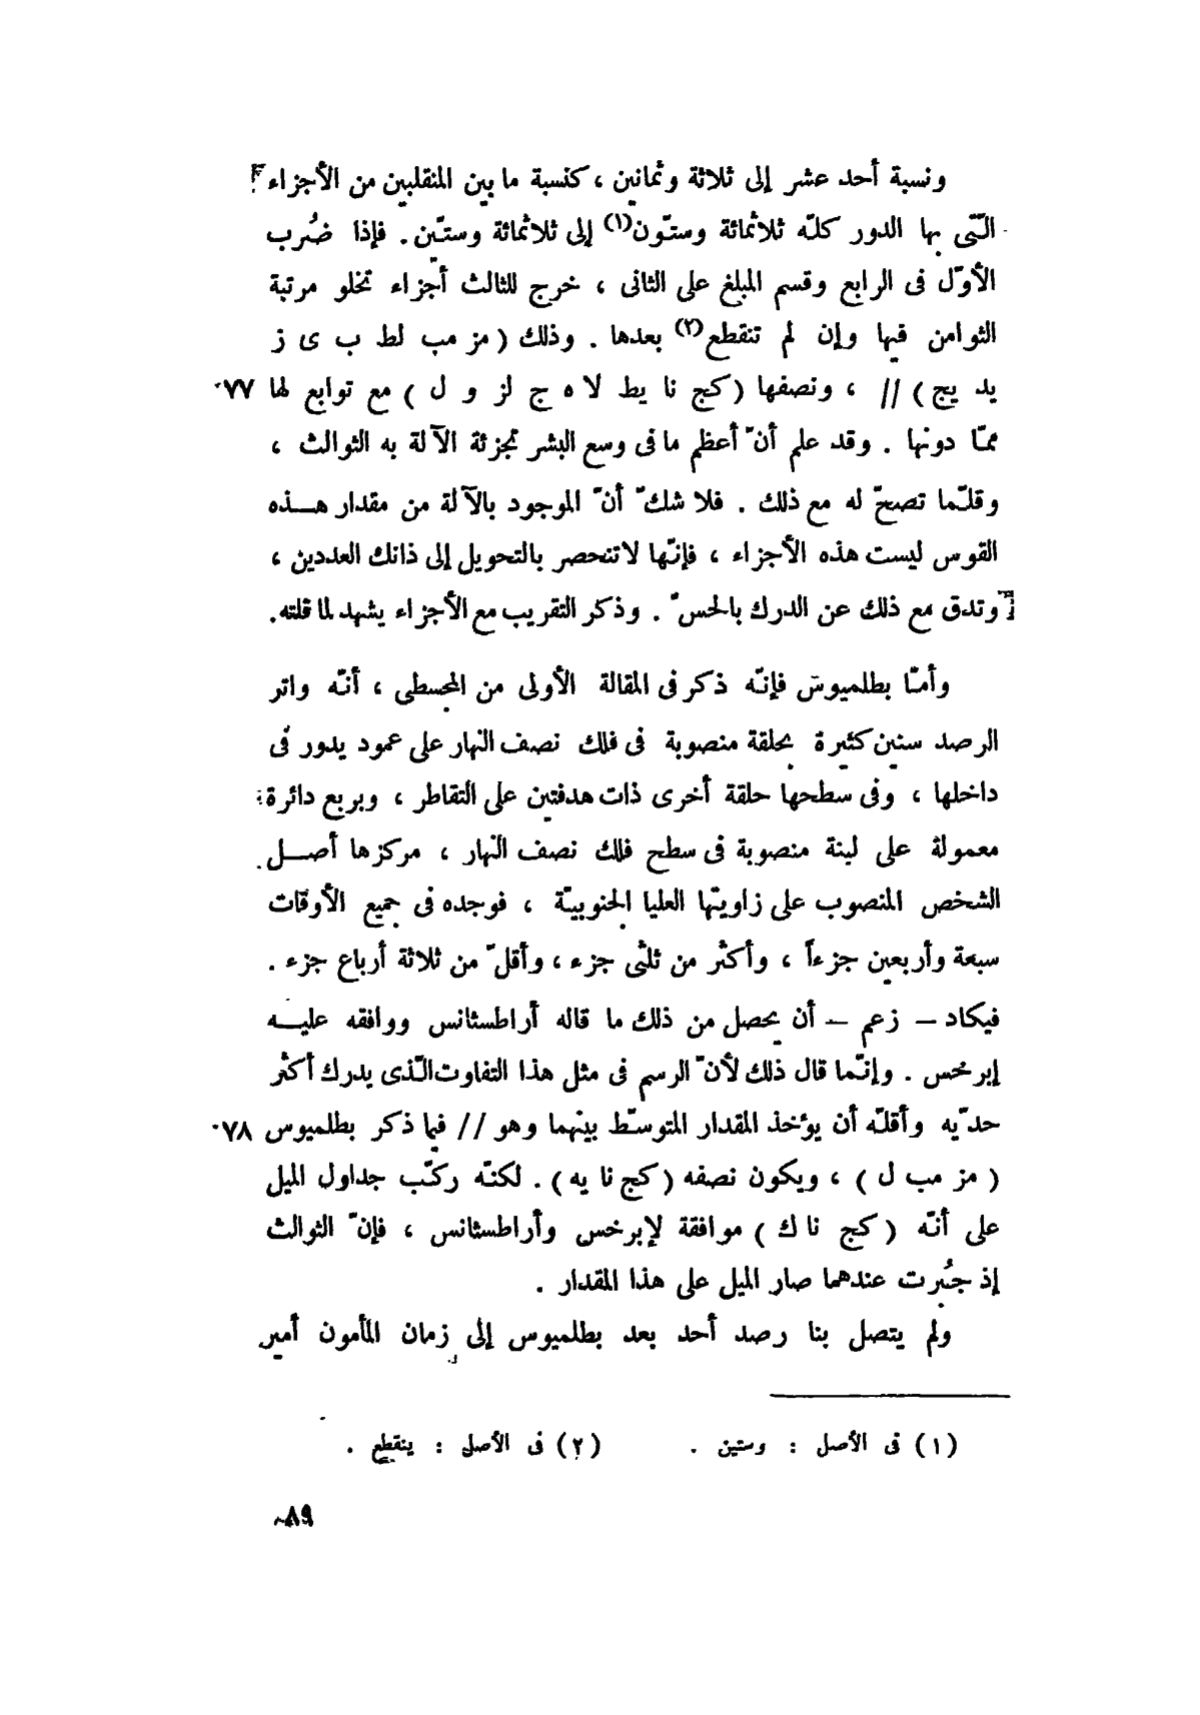 ونسبة أحد عشر إلى ثلاثة وثمانين ، كنسبة ما بين المنقلبين من الأجزاء
الّتى بها الدور كلّه ثلاثمائة وستّون(١) إلى ثلاثمائة وستّين . فإذا ضُرب
الأوّل فى الرابع وقسم المبلغ على الثانى ، خرج للثالث أجزاء تخلو مرتبة
الثوامن فيها وإن لم تنقطع(٢) بعدها . وذلك ( مز مب لط ب ى ز
يد يج ) // ، ونصفها ( كج نا يط لا ه ج لز و ل ) مع توابع لها ٧٧
ممّا دونها . وقد علم أنّ أعظم ما فى وسع البشر تجزئة الآلة به الثوالث ،
وقلّما تصحّ له مع ذلك . فلا شكّ أنّ الموجود بالآلة من مقدار هـذه
القوس ليست هذه الأجزاء ، فإنّها لا تنحصر بالتحويل إلى ذانك العددين ،
وتدق مع ذلك عن الدرك بالحسّ . وذكر التقريب مع الأجزاء يشهد لما قلته.
وأمّا بطلميوس فإنّه ذكر فى المقالة الأولى من المجسطى ، أنّه واتر
الرصد سنين كثيرة بحلقة منصوبة فى فلك نصف النهار على عمود يدور فى
داخلها ، وفى سطحها حلقة أخرى ذات هدفتين على التقاطر ، وبربع دائرة
معمولة على لبنة منصوبة فى سطح فلك نصف النهار ، مركزها أصـل
الشخص المنصوب على زاويتها العليا الجنوبيّة ، فوجده فى جميع الأوقات
سبعة وأربعين جزءاً ، وأكثر من ثلثى جزء ، وأقلّ من ثلاثة أرباع جزء .
فيكاد – زعم – أن يحصل من ذلك ما قاله أراطسثانس ووافقه عليـه
إبرخس . وإنّما قال ذلك لأنّ الرسم فى مثل هذا التفاوت الّذى يدرك أكثر
حدّيه وأقلّه أن يؤخذ المقدار المتوسّط بينهما وهو // فيما ذكر بطلميوس ٧٨
( مز مب ل ) ، ويكون نصفه ( كج نا يه ) . لكنّه ركّب جداول الميل
على أنّه ( كج نا ك ) موافقة لإبرخس وأراطسثانس ، فإنّ الثوالث
إذ جُبرت عندهما صار الميل على هذا المقدار .
ولم يتصل بنا رصد أحد بعد بطلميوس إلى زمان المأمون أمير
(١) فى الأصل : وستين . (٢) فى الأصل : ينقطع .
٨٩